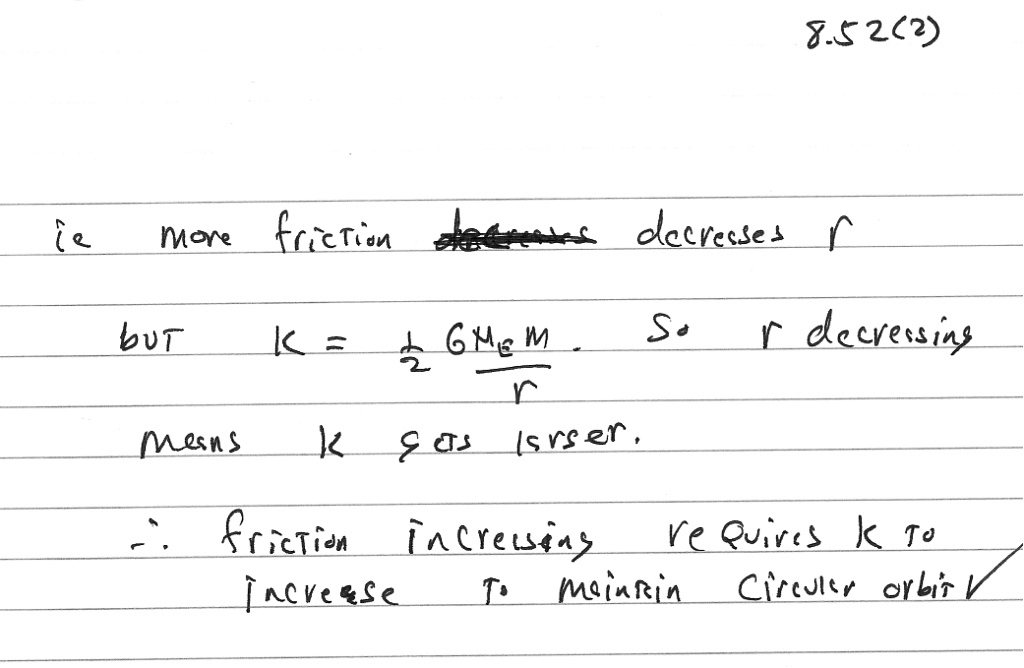 8.52(2)
ie more friction decreases r
but K = 1/2 GMEM/r . So r decreasing
means k gets larger.
∴ friction increasing requires k to
increase to maintain circular orbit ✓